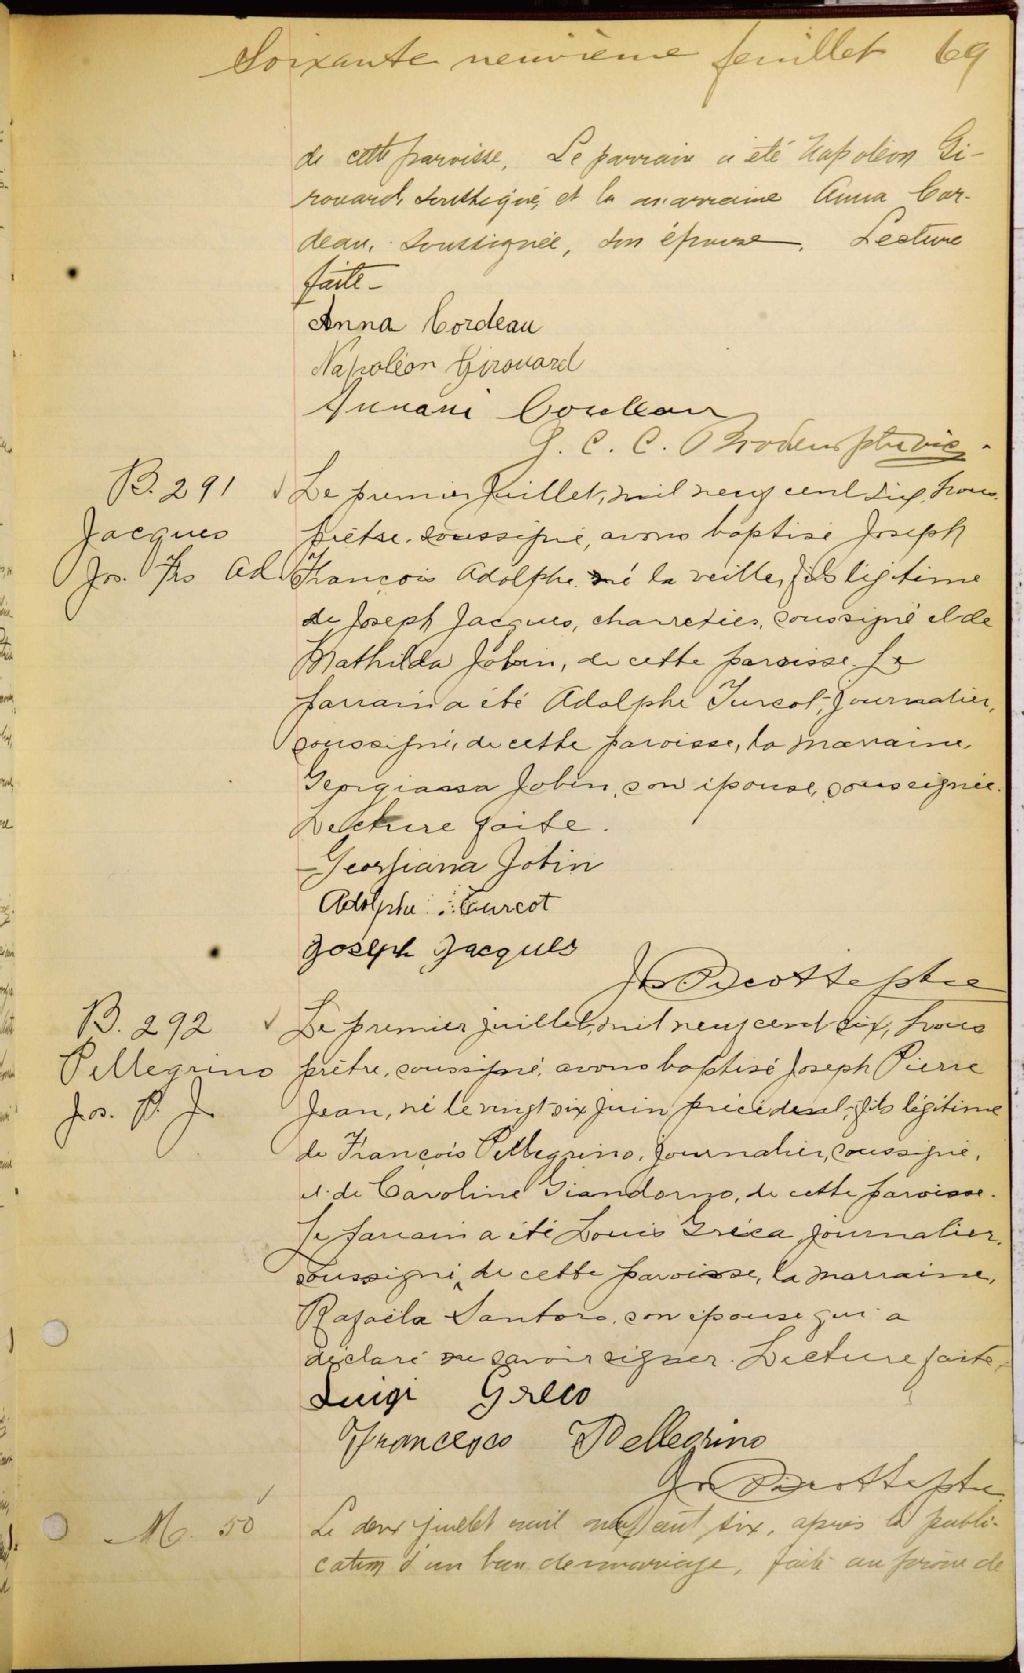 Soixante neuvième feuillet 69
de cette paroisse. Le parrain a été Napoléon Gi-
rouard, soussigné, et la marraine Anna Cor-
deau, soussignée, son épouse. Lecture
faite -
Anna Cordeau
Napoléon Girouard
Cordeau
J. C. C. ptre vic
B. 291
Jacques
Jos. Frs Ad.
Le premier Juillet, mil neuf cent six, nous
prêtre, soussigné, avons baptisé Joseph
François Adolphe né la veille, fils légitime
de Joseph Jacques, charretier, soussigné et de
Mathilda Jobin, de cette paroisse. Le
parrain a été Adolphe Turcot, journalier,
soussigné, de cette paroisse, la marraine,
Georgianna Jobin, son épouse, soussignée.
Lecture faite.
Georgiana Jobin
Adolphe Turcot
Joseph Jacques
ptre
B. 292
Pellegrino
Jos. P. J.
Le premier juillet, mil neuf cent six, nous
prêtre, soussigné, avons baptisé Joseph Pierre
Jean, né le vingt six juin précédent, fils légitime
de François Pellegrino, journalier, soussigné,
et de Caroline Giandorno, de cette paroisse.
Le parrain a été Louis Gréca, journalier,
soussigné, de cette paroisse, la marraine,
Rafaëla Santoro, son épouse qui a
déclaré ne savoir signer. Lecture faite,
Luigi Greco
Francesco Pellegrino
ptre
M. 50
Le deux juillet mil neuf cent six, après la publi-
cation d'un ban de mariage, faite au prône de